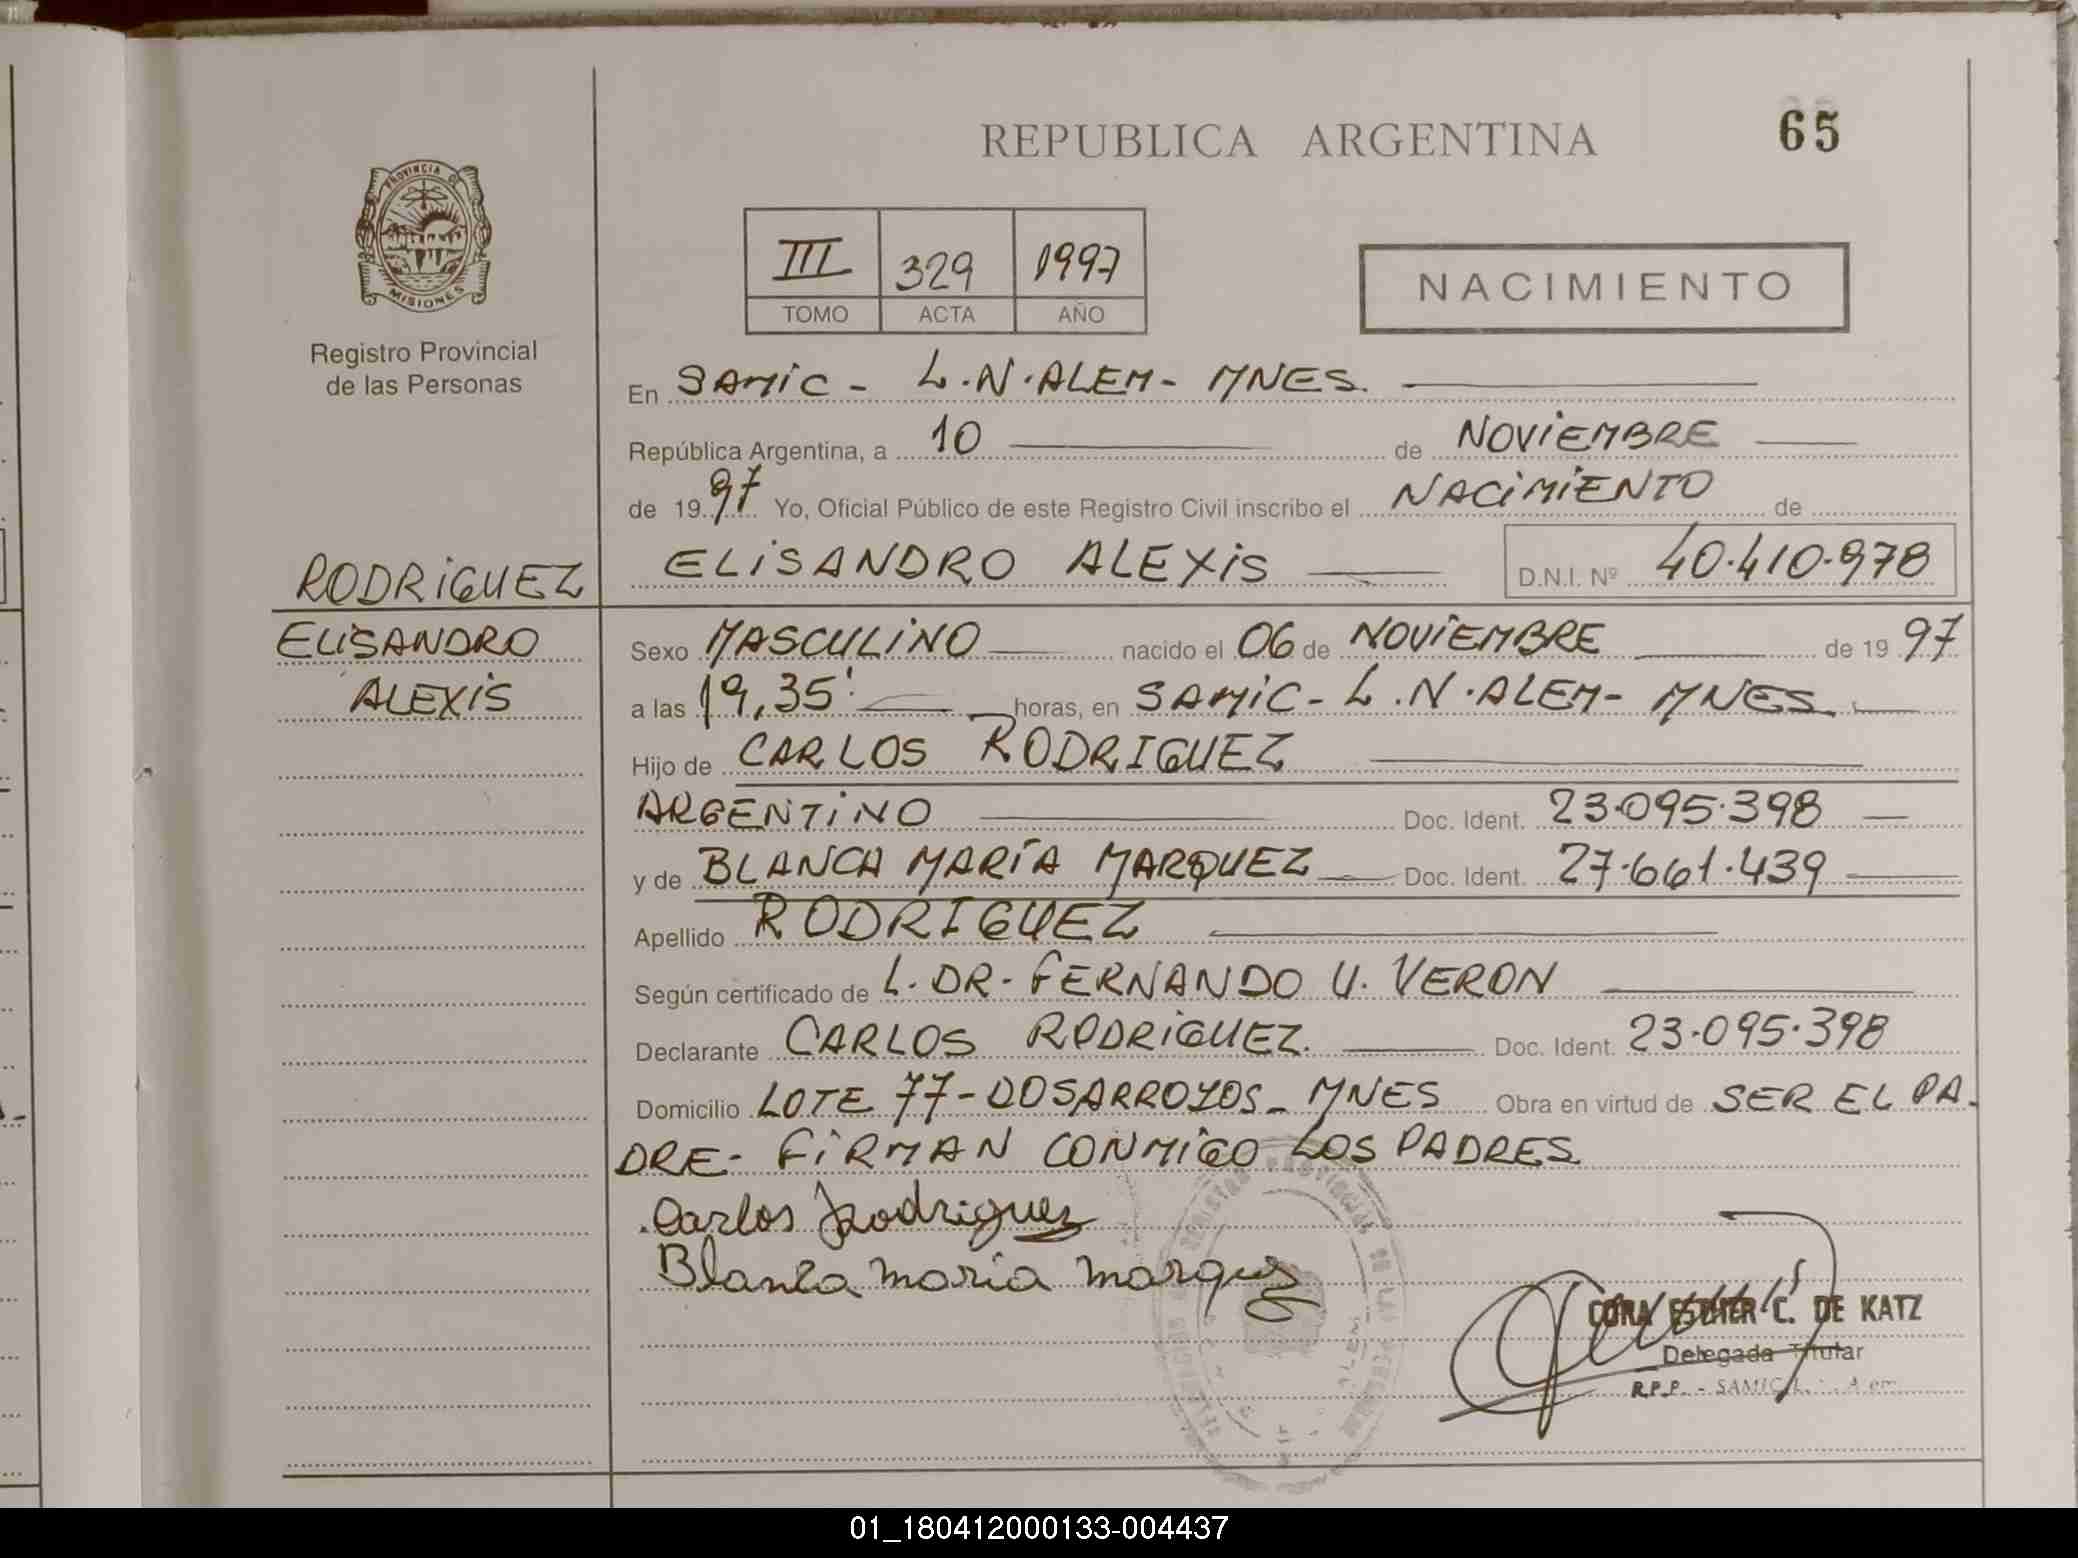 REPUBLICA ARGENTINA
65
PROVINCIA DE
MISIONES
Registro Provincial
de las Personas
III 329 1997
TOMO ACTA AÑO
NACIMIENTO
En SAMIC - L.N.ALEM - MNES.
República Argentina, a 10 de NOVIEMBRE
de 1997 Yo, Oficial Público de este Registro Civil inscribo el NACIMIENTO de
RODRIGUEZ
ELISANDRO ALEXIS D.N.I. Nº 40.410.978
ELISANDRO
ALEXIS
Sexo MASCULINO nacido el 06 de NOVIEMBRE de 1997
a las 19,35' horas, en SAMIC - L.N.ALEM - MNES.
Hijo de CARLOS RODRIGUEZ
ARGENTINO Doc. Ident. 23.095.398
y de BLANCA MARÍA MARQUEZ Doc. Ident. 27.661.439
Apellido RODRIGUEZ
Según certificado de L. DR. FERNANDO U. VERON
Declarante CARLOS RODRIGUEZ. Doc. Ident. 23.095.398
Domicilio LOTE 77 - DOSARROYOS - MNES Obra en virtud de SER EL PA-
DRE - FIRMAN CONMIGO LOS PADRES
Carlos Rodriguez
Blanca maria marquez
CORA ESTHER C. DE KATZ
Delegada Titular
R.P.P. - SAMIC L. Alem
01_180412000133-004437